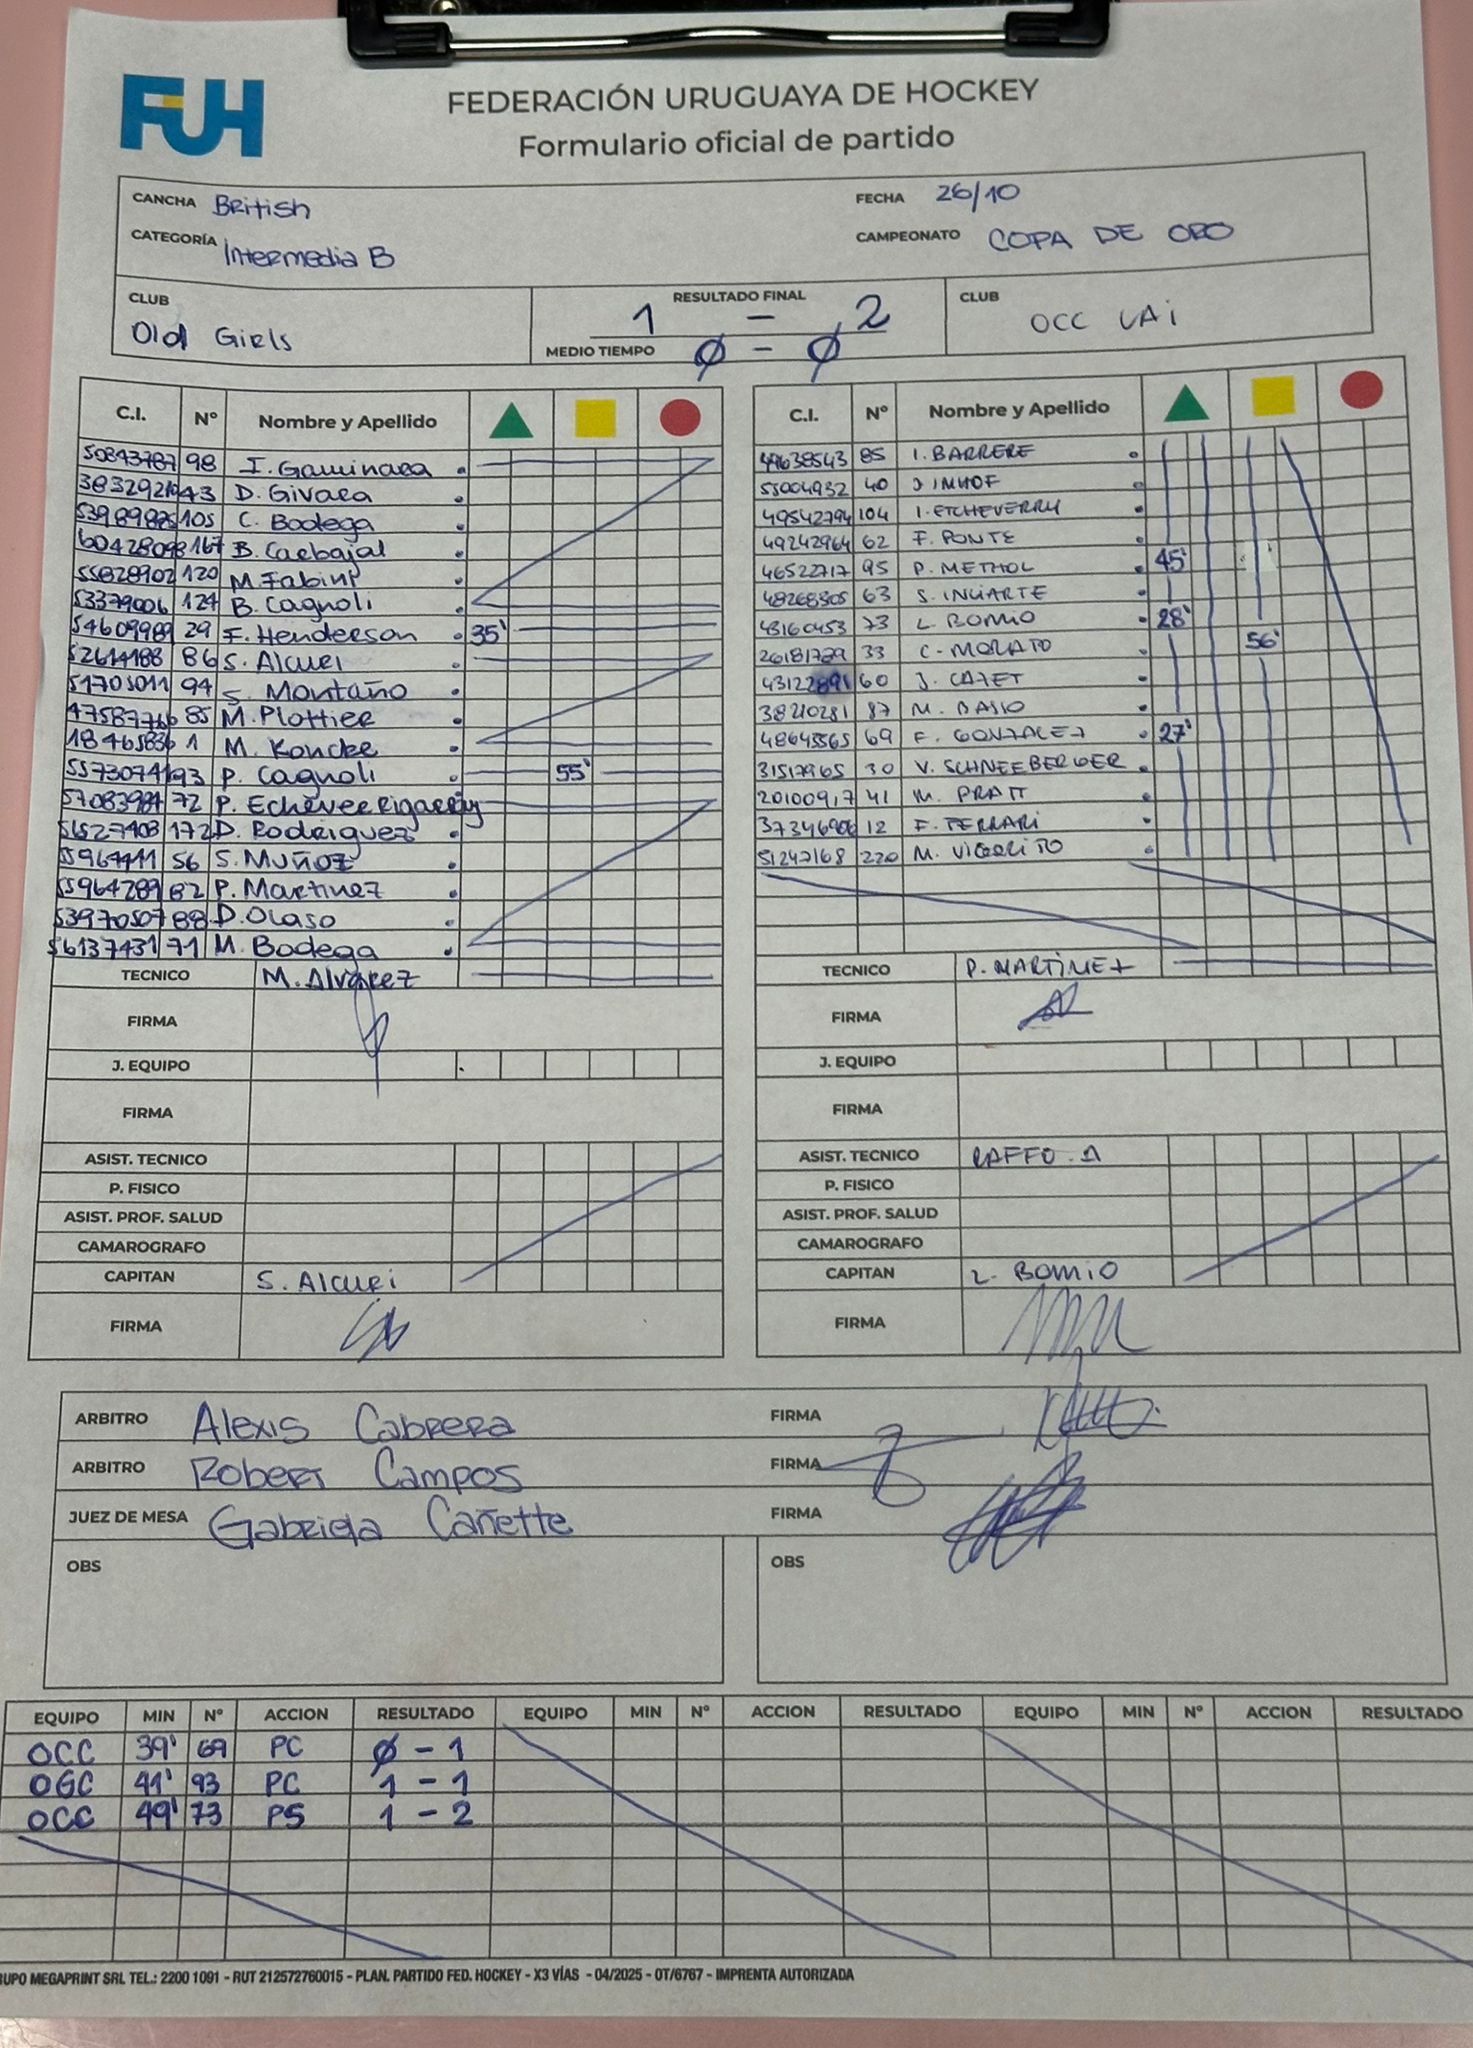 FUH
FEDERACIÓN URUGUAYA DE HOCKEY
Formulario oficial de partido
CANCHA British FECHA 26/10
CATEGORÍA Intermedia B CAMPEONATO COPA DE ORO
CLUB Old Girls RESULTADO FINAL 1 - 2 CLUB OCC UAI
MEDIO TIEMPO Ø - Ø
C.I. Nº Nombre y Apellido C.I. Nº Nombre y Apellido
50843787 98 I. Gaminara 85 I. BARRERE
43 D. Givara 55004932 40 J IMHOF
105 C. Bodega 49542794 104 I. ETCHEVERRY
167 B. Carbajal 49242964 62 F. PONTE
55828902 120 M. Fabiny 46522717 95 P. METHOL 45'
53379006 124 B. Cagnoli 48268305 63 S. INCIARTE
54609989 29 F. Henderson 35' 43160453 73 L. BOMIO 28'
52614188 86 S. Alcuri 26181729 33 C. MORATO 56'
51705011 94 S. Montaño 60
85 M. Plottier 38210281 87 M. BASSO
1 M. Koncke 48645565 69 F. GONZALEZ 27'
93 P. Cagnoli 55' 31517965 30 V. SCHNEEBERGER
57083984 72 P. Echeverrigaray 41 M. PRATT
172 D. Rodriguez 12 F. FERRARI
56 S. MUÑOZ 51247168 220
55964289 82 P. Martinez
53970507 88 D. Olaso
56137431 71 M. Bodega
TECNICO M. Alvarez TECNICO P. MARTINEZ
FIRMA FIRMA
J. EQUIPO J. EQUIPO
FIRMA FIRMA
ASIST. TECNICO ASIST. TECNICO RAFFO. A
P. FISICO P. FISICO
ASIST. PROF. SALUD ASIST. PROF. SALUD
CAMAROGRAFO CAMAROGRAFO
CAPITAN S. Alcuri CAPITAN L. BOMIO
FIRMA FIRMA
ARBITRO Alexis Cabrera FIRMA
ARBITRO Robert Campos FIRMA
JUEZ DE MESA Gabriela Cañette FIRMA
OBS OBS
EQUIPO MIN Nº ACCION RESULTADO EQUIPO MIN Nº ACCION RESULTADO EQUIPO MIN Nº ACCION RESULTADO
OCC 39' 69 PC Ø - 1
OGC 41' 93 PC 1 - 1
OCC 49' 73 PS 1 - 2
RUPO MEGAPRINT SRL TEL.: 2200 1091 - RUT 212572760015 - PLAN. PARTIDO FED. HOCKEY - X3 VÍAS - 04/2025 - OT/6767 - IMPRENTA AUTORIZADA